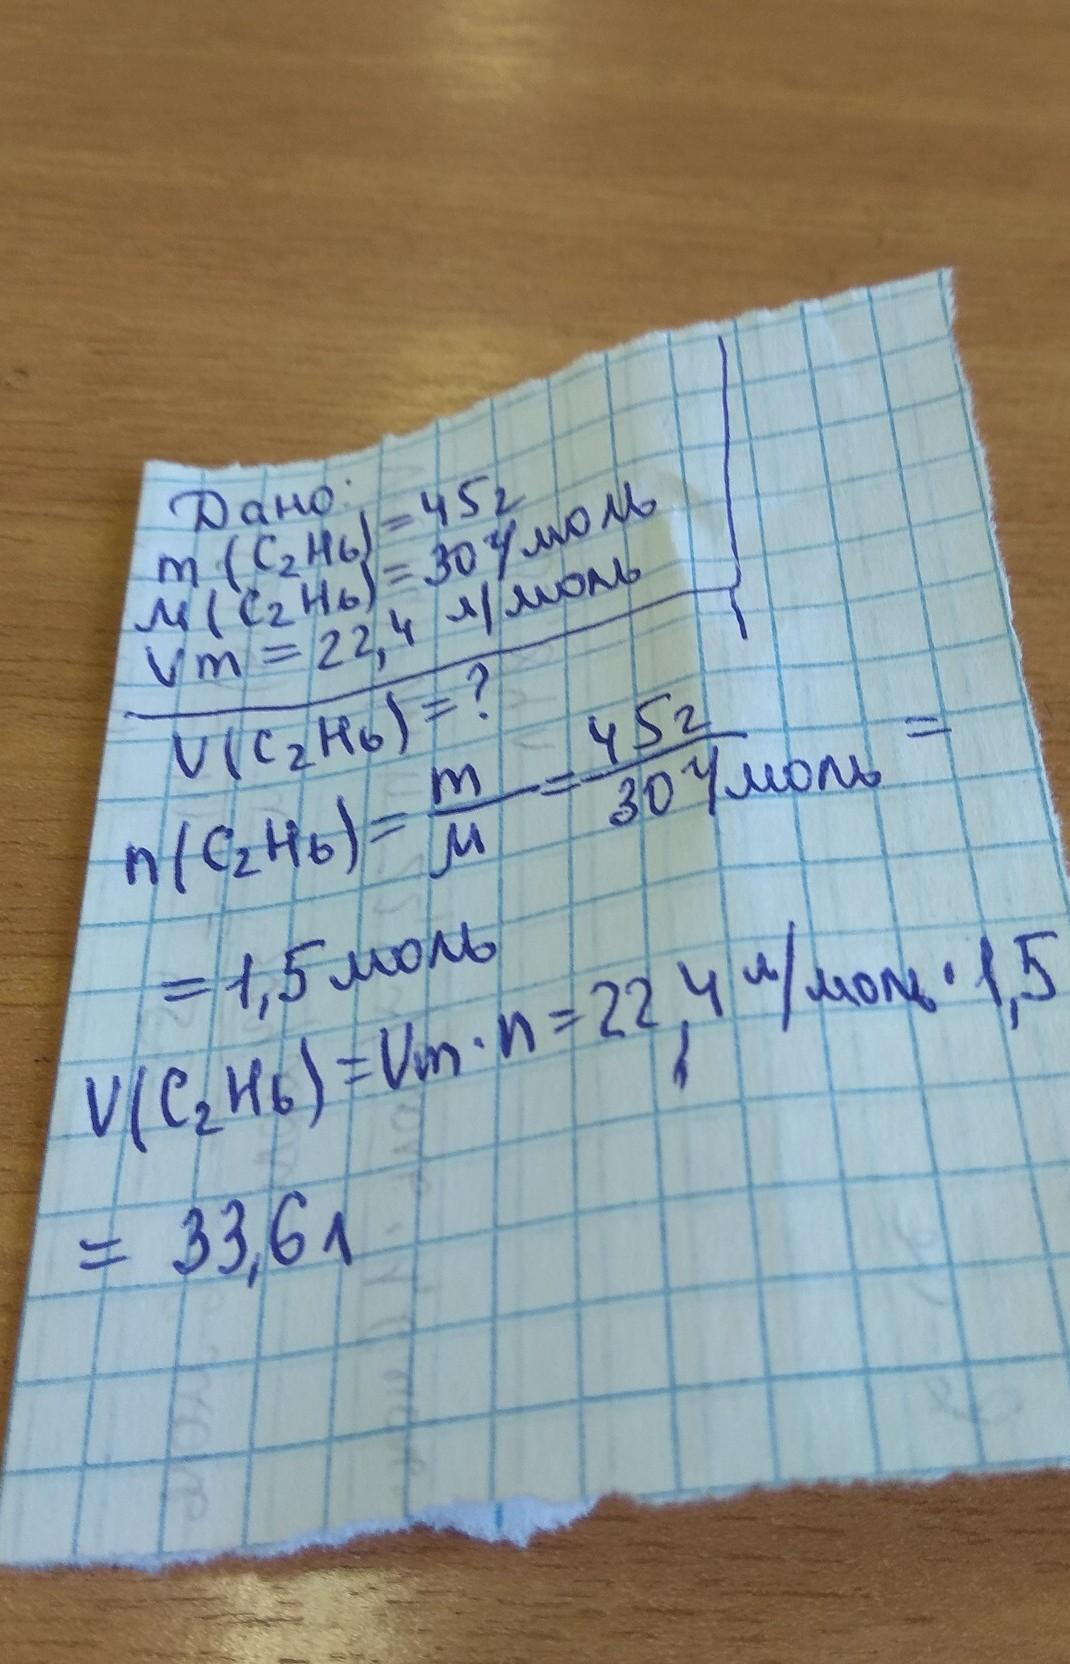 Дано:
m(C₂H₆)=45г
M(C₂H₆)=30г/моль
Vm=22,4 л/моль
V(C₂H₆)=?
n(C₂H₆)=m/M=45г/30г/моль=
=1,5моль
V(C₂H₆)=Vm·n=22,4л/моль·1,5
= 33,6л